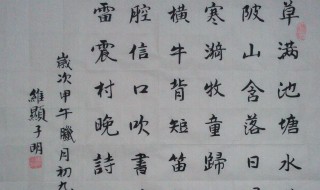 草滿池塘水
陂山含落日
寒漪牧童歸
橫牛背短笛
腔信口吹書
雷震村晚詩
歲次甲午臘月初九
維顯子明